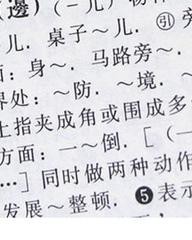 (邊) (-儿)
儿. 桌子～儿. ㊁ 旁
: 身～. 马路旁～.
界处: ～防. ～境.
土指夹成角或围成多
方面: 一～倒. [(一
…] 同时做两种动作
发展～整顿. ❺表示